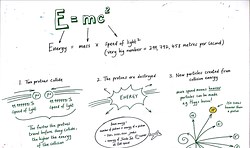 E=mc²
Energy = mass × speed of light²
(very big number = 299,792,458 metres per second)
1. Two protons collide
2. The protons are destroyed
3. New particles created from
collision energy
99.99999%
speed of light
99.99999%
speed of light
ENERGY
The faster the protons
travel before they collide,
the higher the energy
of the collision
more speed means heavier
particles can be made
eg. Higgs boson!